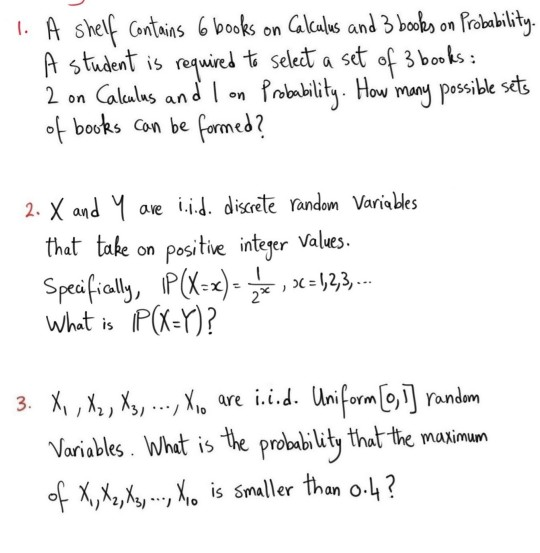 1. A shelf contains 6 books on Calculus and 3 books on Probability.
A student is required to select a set of 3 books:
2 on Calculus and 1 on Probability. How many possible sets
of books can be formed?
2. X and Y are i.i.d. discrete random variables
that take on positive integer values.
Specifically, ℙ(X=x) = 1/2^x, x=1,2,3,...
What is ℙ(X=Y)?
3. X₁, X₂, X₃, ..., X₁₀ are i.i.d. Uniform [0,1] random
Variables. What is the probability that the maximum
of X₁, X₂, X₃, ..., X₁₀ is smaller than 0.4?